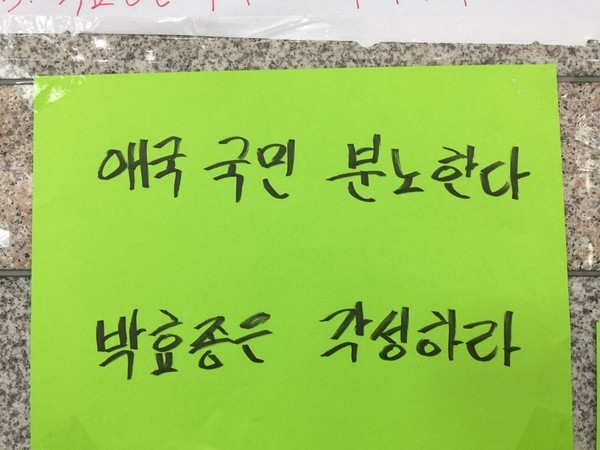 애국 국민 분노한다
박효종은 각성하라